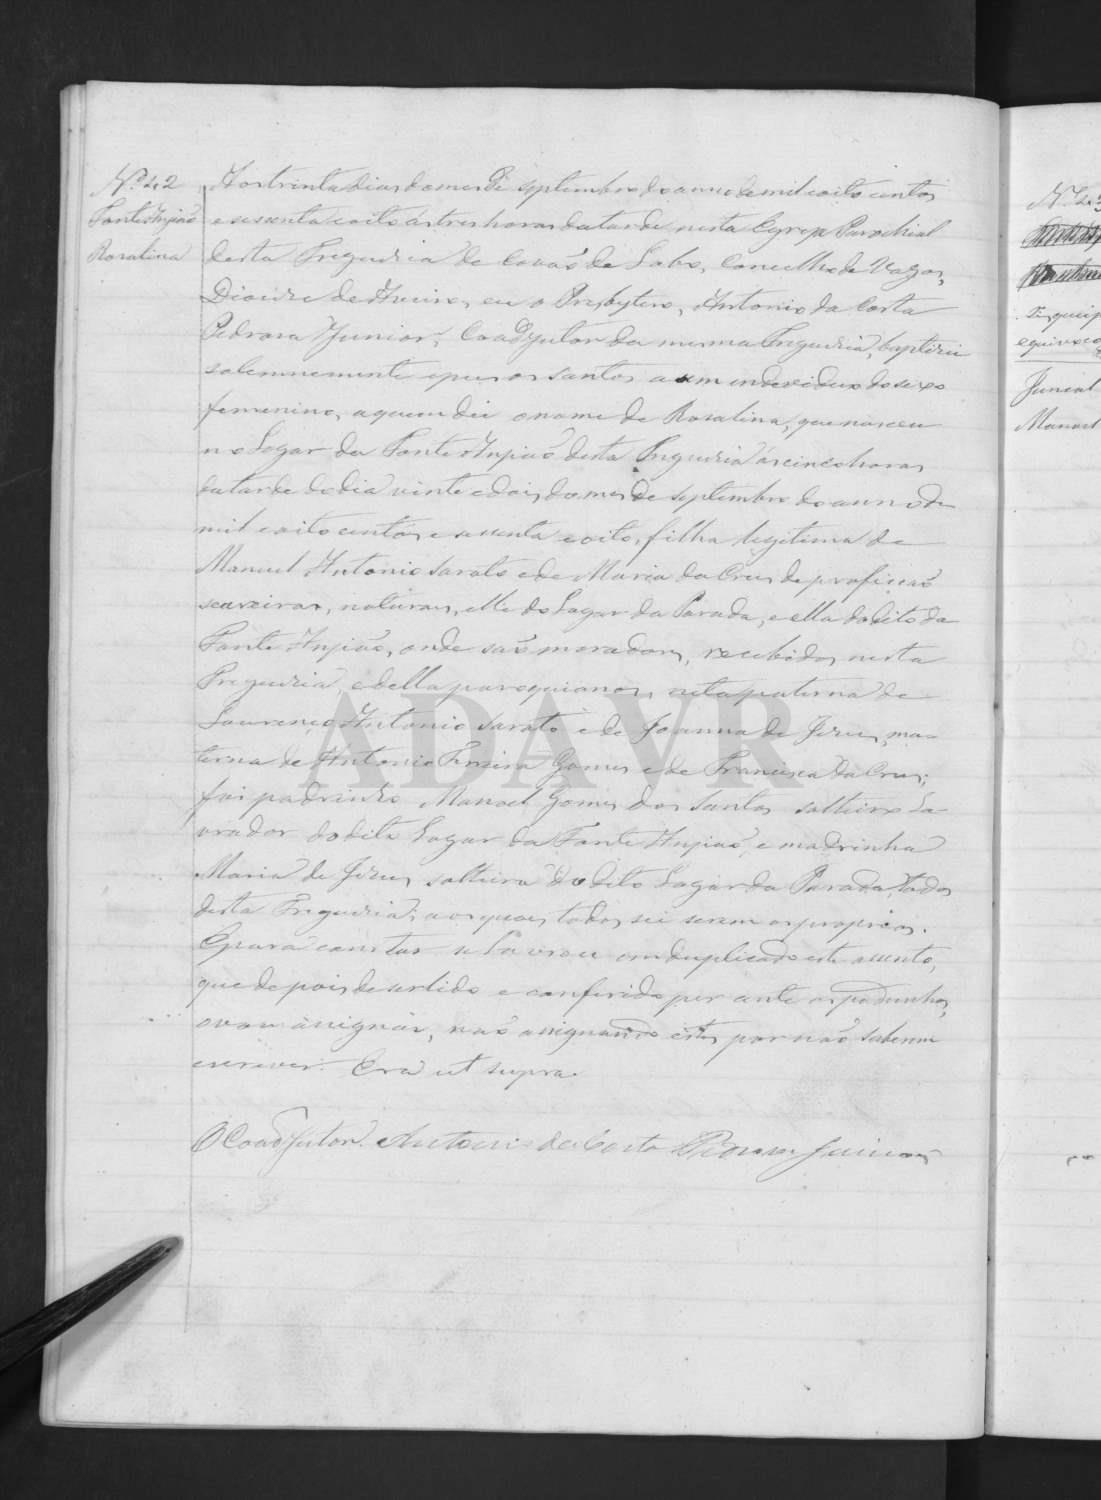 N.º 42
Fonte Anjião
Rosalina
Aos trinta dias do mes de septembro do anno de mil e oito centos
e sessenta e oito ás tres horas da tarde nesta Egreja Parochial
desta Freguezia de Covão de Lobo, Concelho de Vagos,
Diocese de Aveiro, eu o Presbytero, Antonio da Costa
Pedrosa Junior, Coadjutor da mesma Freguezia, baptizei
solemnemente e puz os santos a um individuo do sexo
femenino, a quem dei o nome de Rosalina, que nasceu
no Logar da Fonte Anjião desta Freguezia ás cinco horas
da tarde do dia vinte e dois do mes de septembro do anno de
mil e oito centos e sessenta e oito, filha legitima de
Manuel Antonio Sarato e de Maria da Crus de profissão
seareiros, naturas, elle do Logar da Parada, e ella do dito da
Fonte Anjião, onde são moradores, recebidos nesta
Freguezia, e della paroquianos, neta paterna de
Lourenço Antonio Sarato e de Joanna de Jezus, ma-
terna de Antonio Ferreira Gomes e de Francisca da Crus;
foi padrinho Manoel Gomes dos Santos solteiro La-
vrador do dito Logar da Fonte Anjião, e madrinha
Maria de Jezus, solteira do dito Logar da Parada, todos
desta Freguezia, aos quaes todos sei serem os proprios.
E para constar se lavrou em duplicado este assento,
que depois de ser lido e conferido per ante os padrinhos,
o vou assignar, não assignando estes por não saberem
escrever. Era ut supra.
O Coadjutor. Antonio da Costa Pedrosa Junior
ADAVR
N.º 43
equivoco
Juncal
Manoel